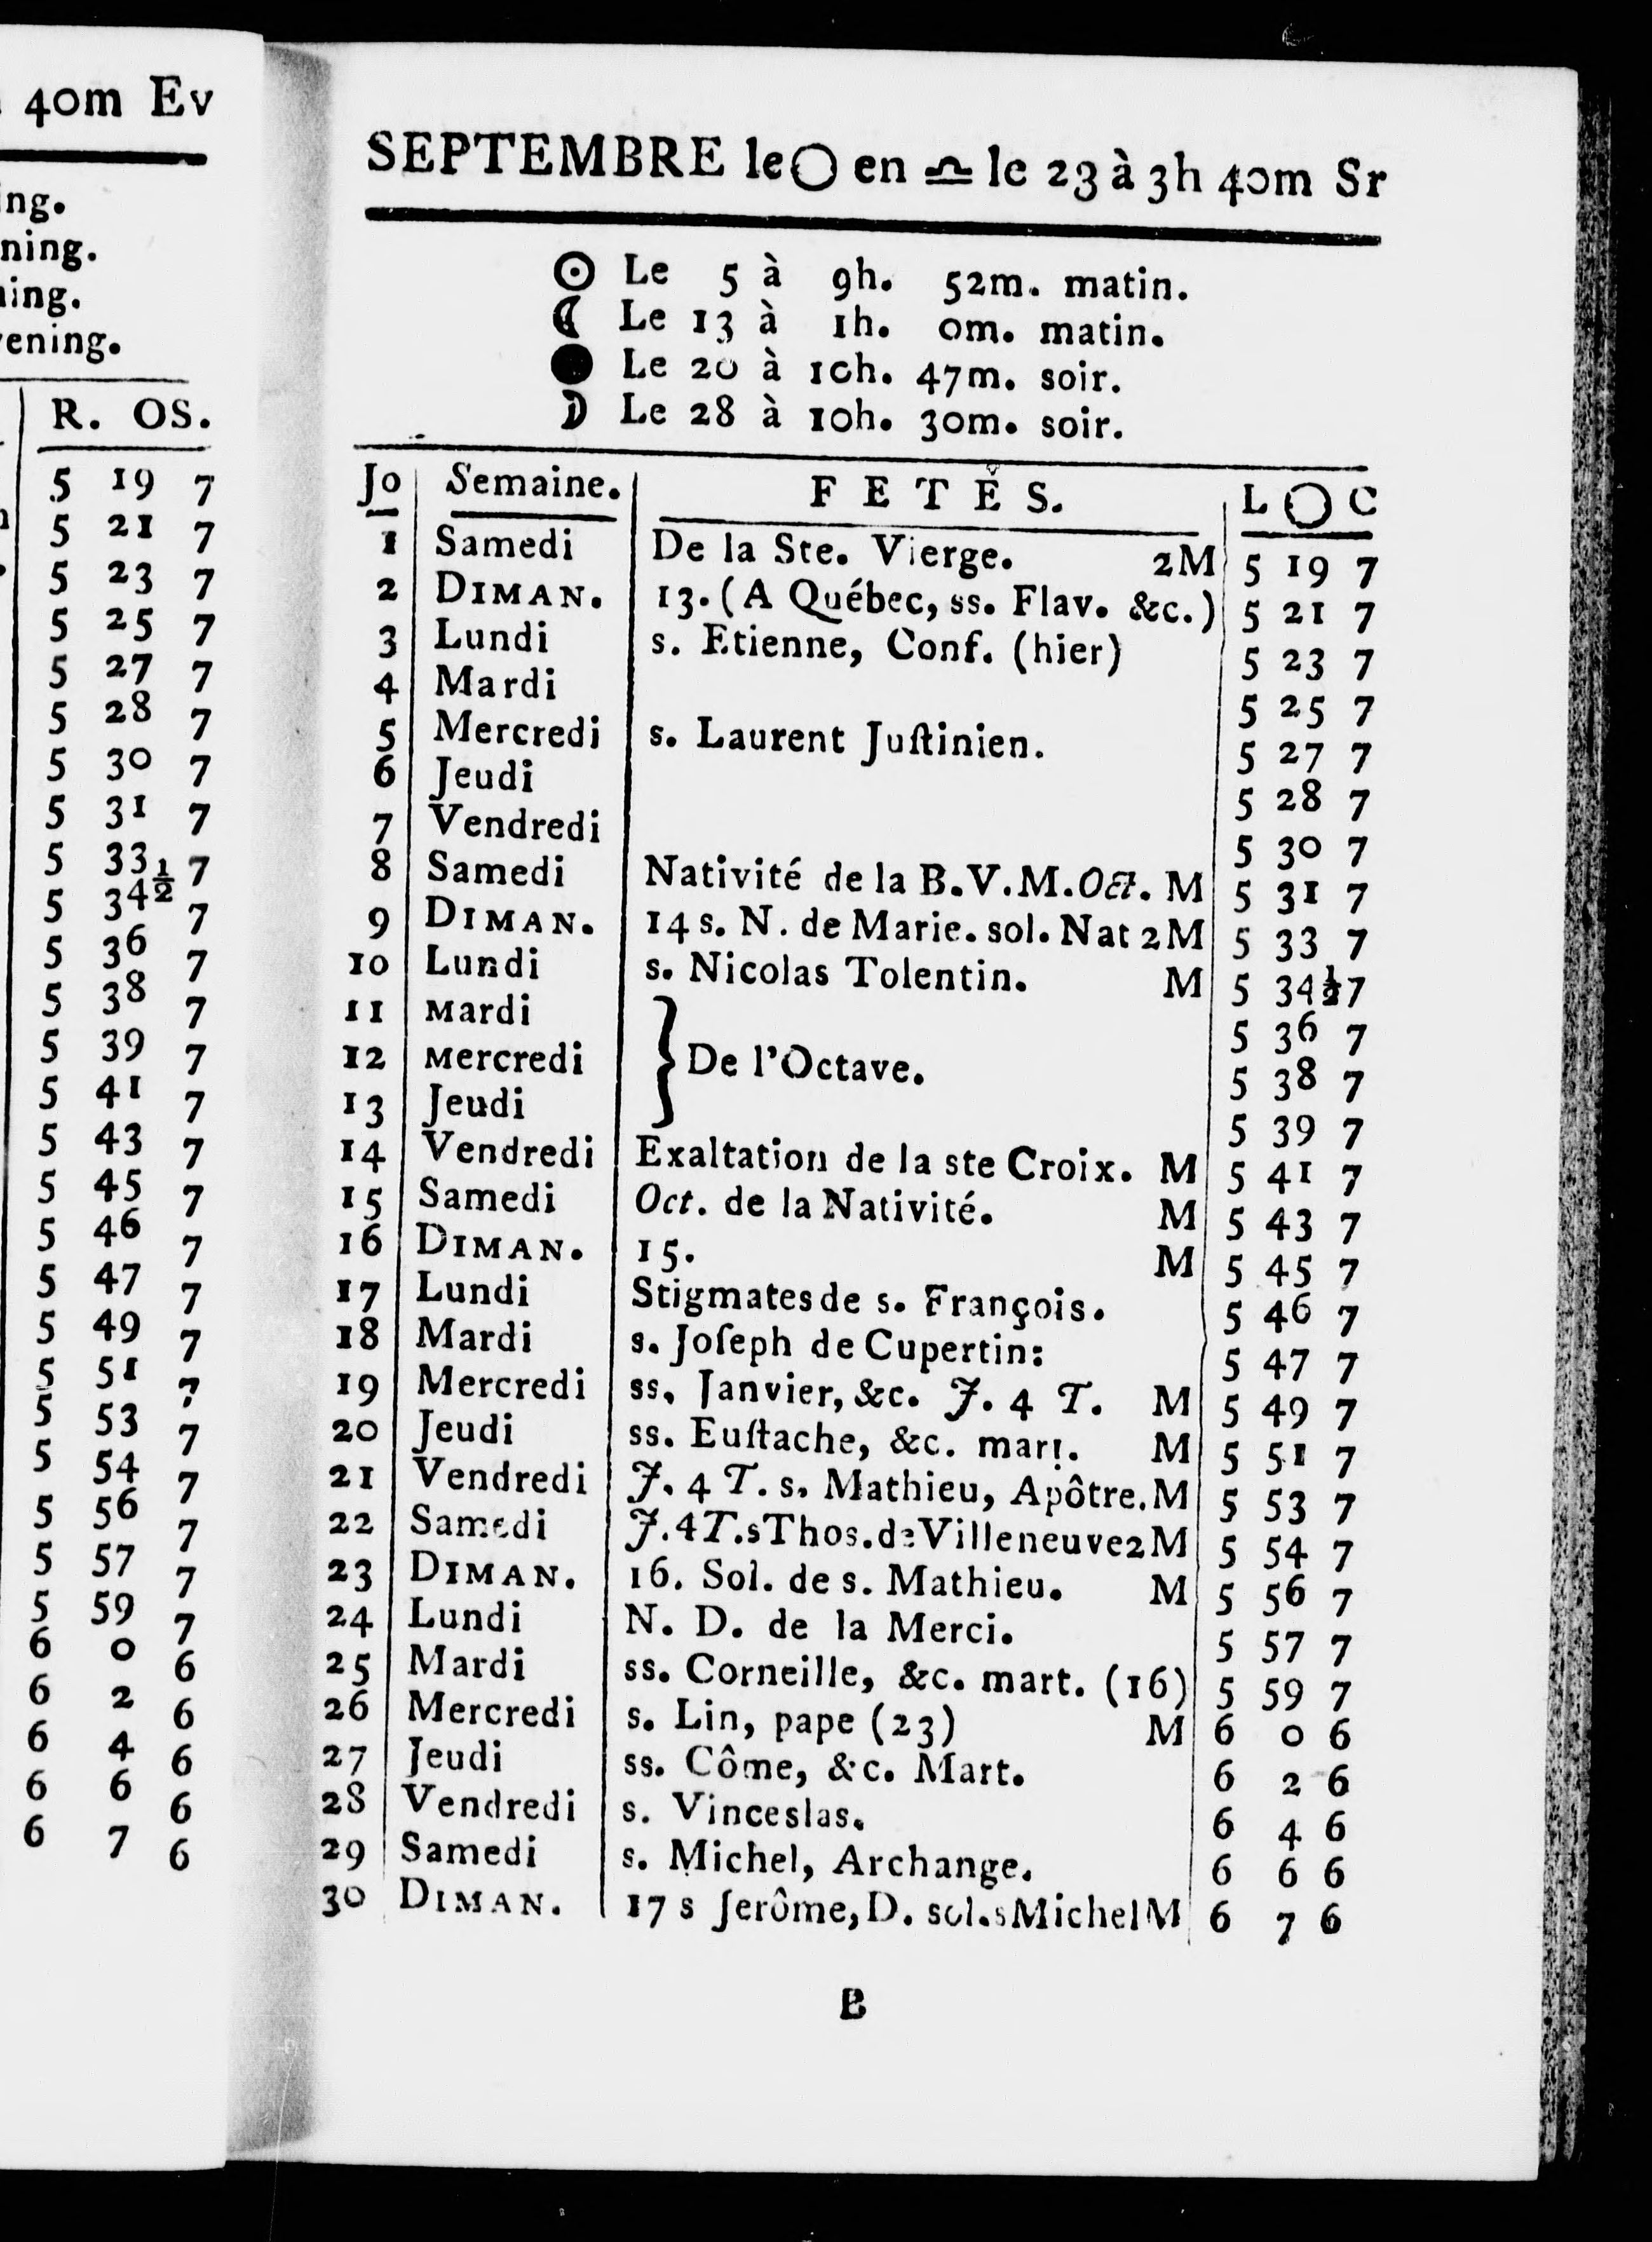 40m Ev
ing.
ning.
ning.
ening.
R. OS.
5 19 7
5 21 7
5 23 7
5 25 7
5 27 7
5 28 7
5 30 7
5 31 7
5 33 7
5 34½ 7
5 36 7
5 38 7
5 39 7
5 41 7
5 43 7
5 45 7
5 46 7
5 47 7
5 49 7
5 51 7
5 53 7
5 54 7
5 56 7
5 57 7
5 59 7
6 0 6
6 2 6
6 4 6
6 6 6
6 7 6
SEPTEMBRE le ◯ en ♎ le 23 à 3h 40m Sr
☉ Le 5 à 9h. 52m. matin.
☾ Le 13 à 1h. 0m. matin.
● Le 20 à 10h. 47m. soir.
☽ Le 28 à 10h. 30m. soir.
Jo Semaine. FETES. L ◯ C
1 Samedi De la Ste. Vierge. 2M 5 19 7
2 DIMAN. 13. (A Québec, ss. Flav. &c.) 5 21 7
3 Lundi s. Etienne, Conf. (hier) 5 23 7
4 Mardi 5 25 7
5 Mercredi s. Laurent Juſtinien. 5 27 7
6 Jeudi 5 28 7
7 Vendredi 5 30 7
8 Samedi Nativité de la B.V.M. Oct. M 5 31 7
9 DIMAN. 14 s. N. de Marie. sol. Nat 2M 5 33 7
10 Lundi s. Nicolas Tolentin. M 5 34½ 7
11 Mardi 5 36 7
12 Mercredi } De l'Octave. 5 38 7
13 Jeudi 5 39 7
14 Vendredi Exaltation de la ste Croix. M 5 41 7
15 Samedi Oct. de la Nativité. M 5 43 7
16 DIMAN. 15. M 5 45 7
17 Lundi Stigmates de s. François. 5 46 7
18 Mardi s. Joſeph de Cupertin: 5 47 7
19 Mercredi ss. Janvier, &c. J. 4 T. M 5 49 7
20 Jeudi ss. Euſtache, &c. mart. M 5 51 7
21 Vendredi J. 4 T. s. Mathieu, Apôtre. M 5 53 7
22 Samedi J. 4 T. s Thos. de Villeneuve 2M 5 54 7
23 DIMAN. 16. Sol. de s. Mathieu. M 5 56 7
24 Lundi N. D. de la Merci. 5 57 7
25 Mardi ss. Corneille, &c. mart. (16) 5 59 7
26 Mercredi s. Lin, pape (23) M 6 0 6
27 Jeudi ss. Côme, &c. Mart. 6 2 6
28 Vendredi s. Vinceslas. 6 4 6
29 Samedi s. Michel, Archange. 6 6 6
30 DIMAN. 17 s Jerôme, D. sol. s Michel M 6 7 6
B